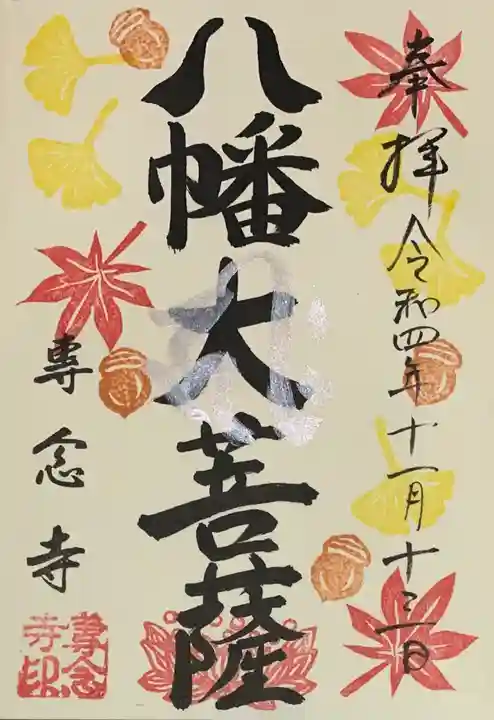 奉拝 令和四年十一月十三日
八幡大菩薩
専念寺
専念寺印